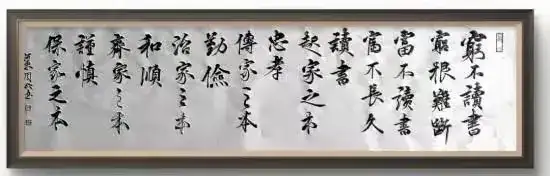 窮不讀書
窮根難斷
富不讀書
富不長久
讀書
起家之本
忠孝
傳家之本
勤儉
治家之本
和順
齊家之本
謹慎
保家之本